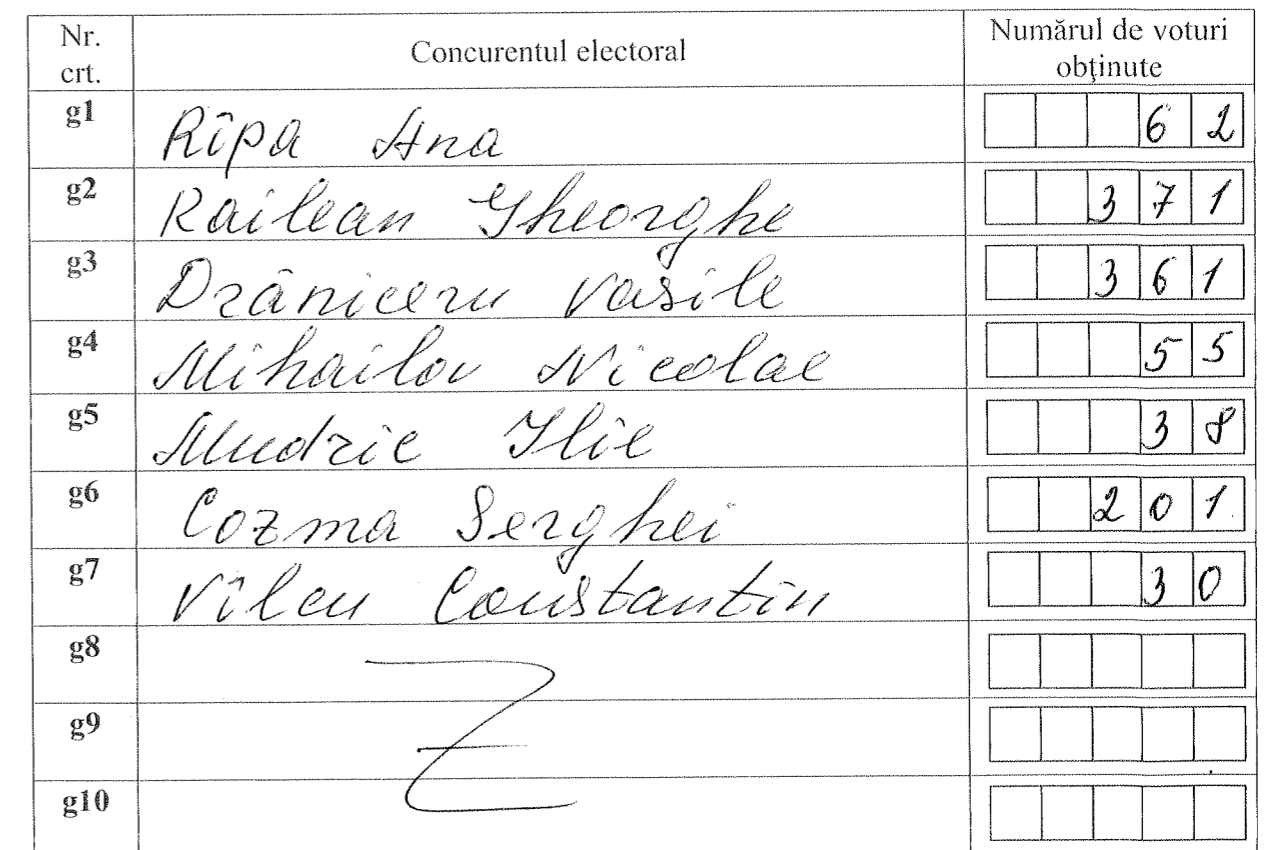 Nr. crt. Concurentul electoral Numărul de voturi obţinute
g1 Rîpa Ana 62
g2 Railean Gheorghe 371
g3 Drăniceru Vasile 361
g4 Mihailov Nicolae 55
g5 Mudric Ilie 38
g6 Cozma Serghei 201
g7 Vîlcu Constantin 30
g8
g9
g10